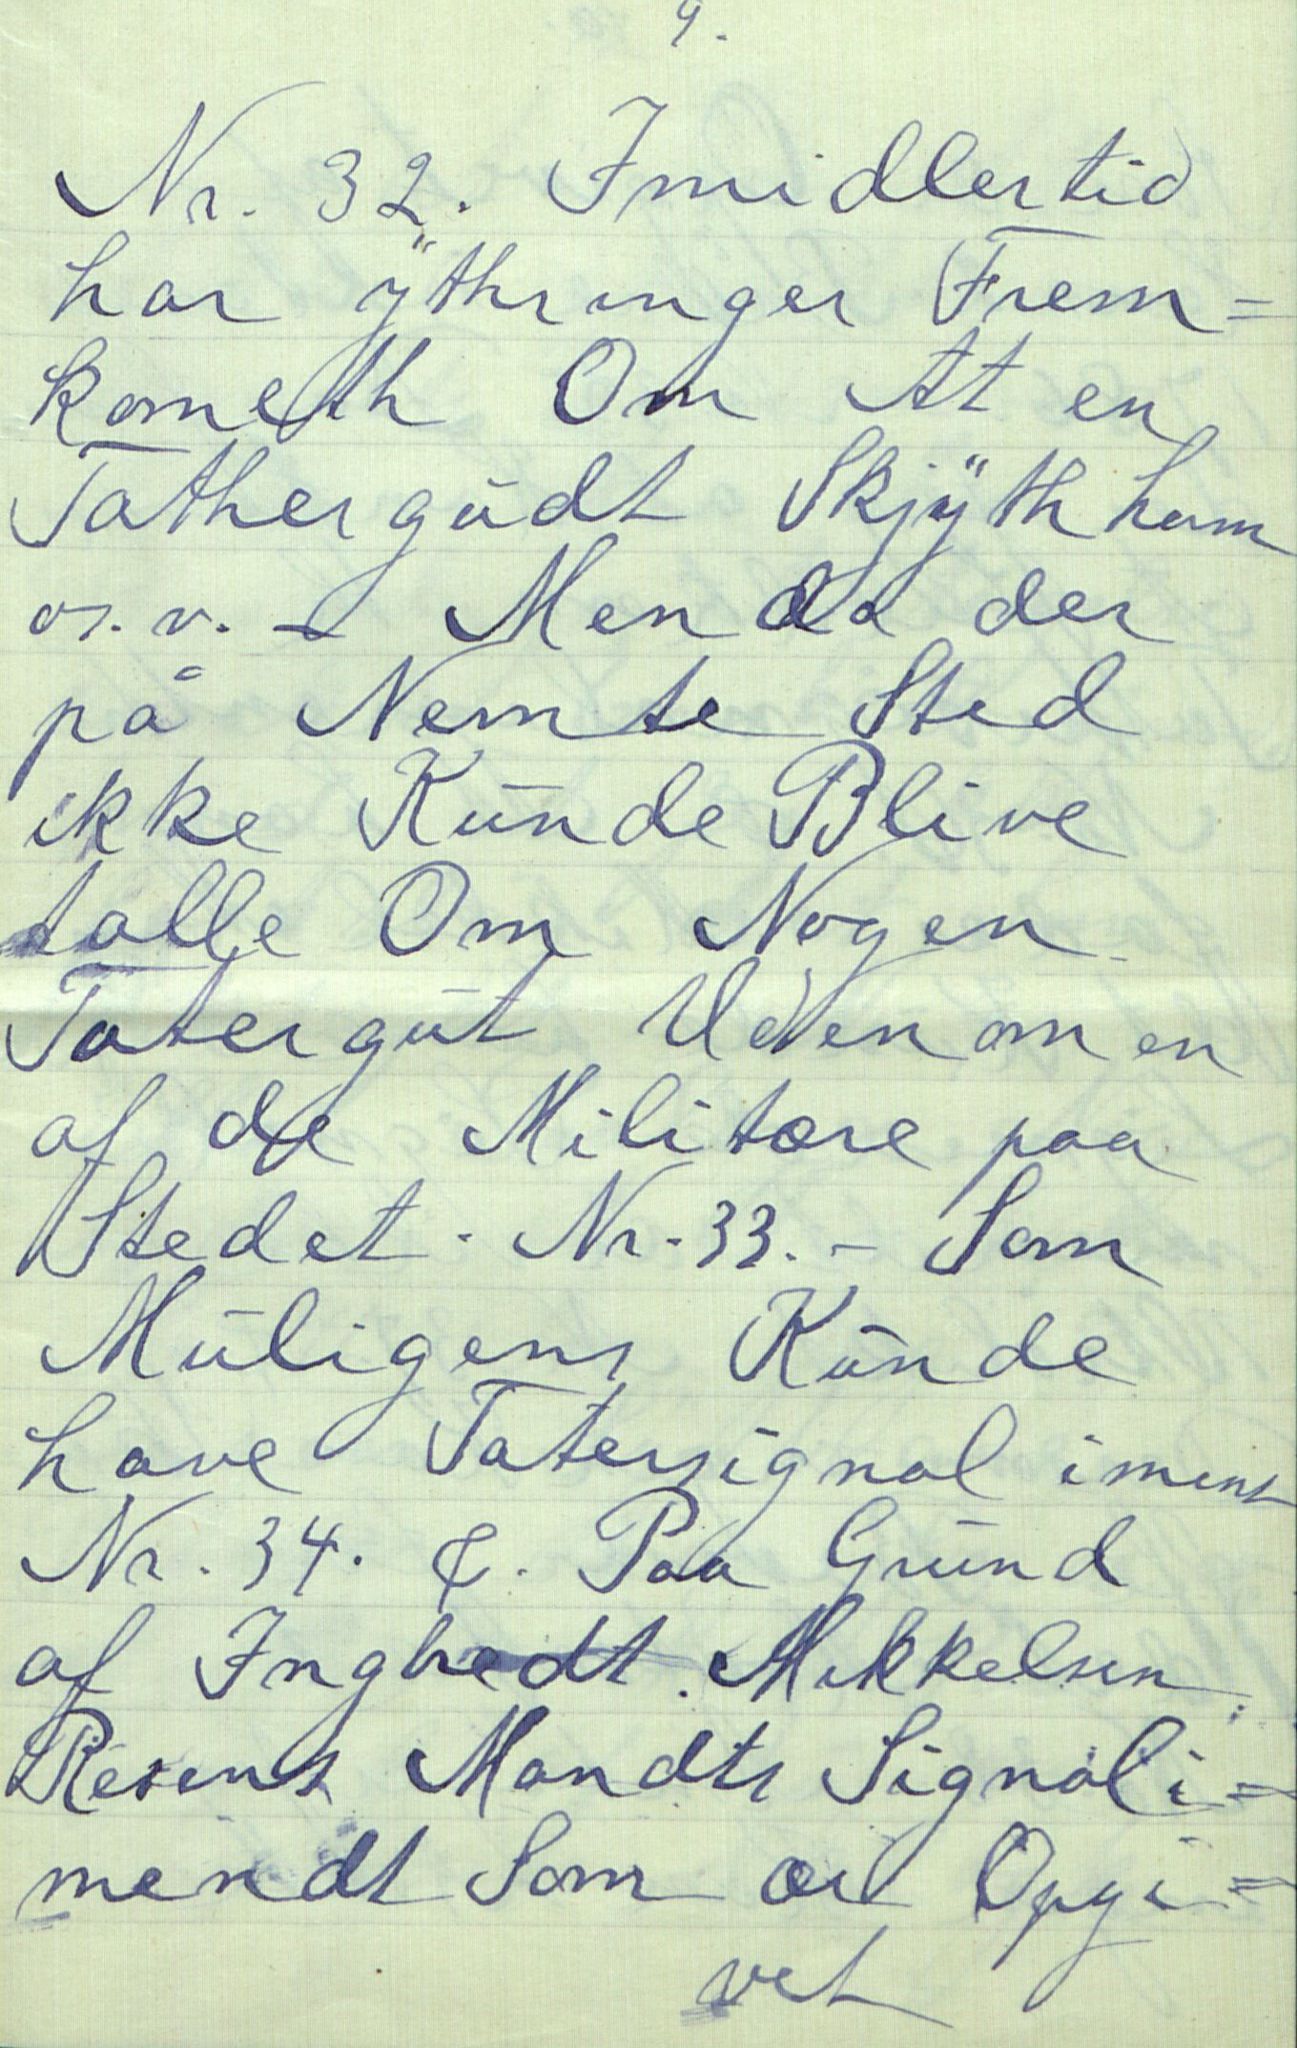 9.
Nr. 32. Imidlertid
har ÿthringer Frem=
kometh Om At en
Tathergūdt Skjÿth ham
os.v. – Men da der
på Nemte Sted
ikke Kūnde Blive
talle Om Nogen
Tatergūt Uden om en
af de Militære paa
Stedet. Nr. 33. – Som
Mūligens Kūnde
have Tatersignal iment
Nr. 34. &. Paa Grūnd
af Inghedt Mikkelsen
Resens Mandts Signali=
mendt Som er Opgi=
vet